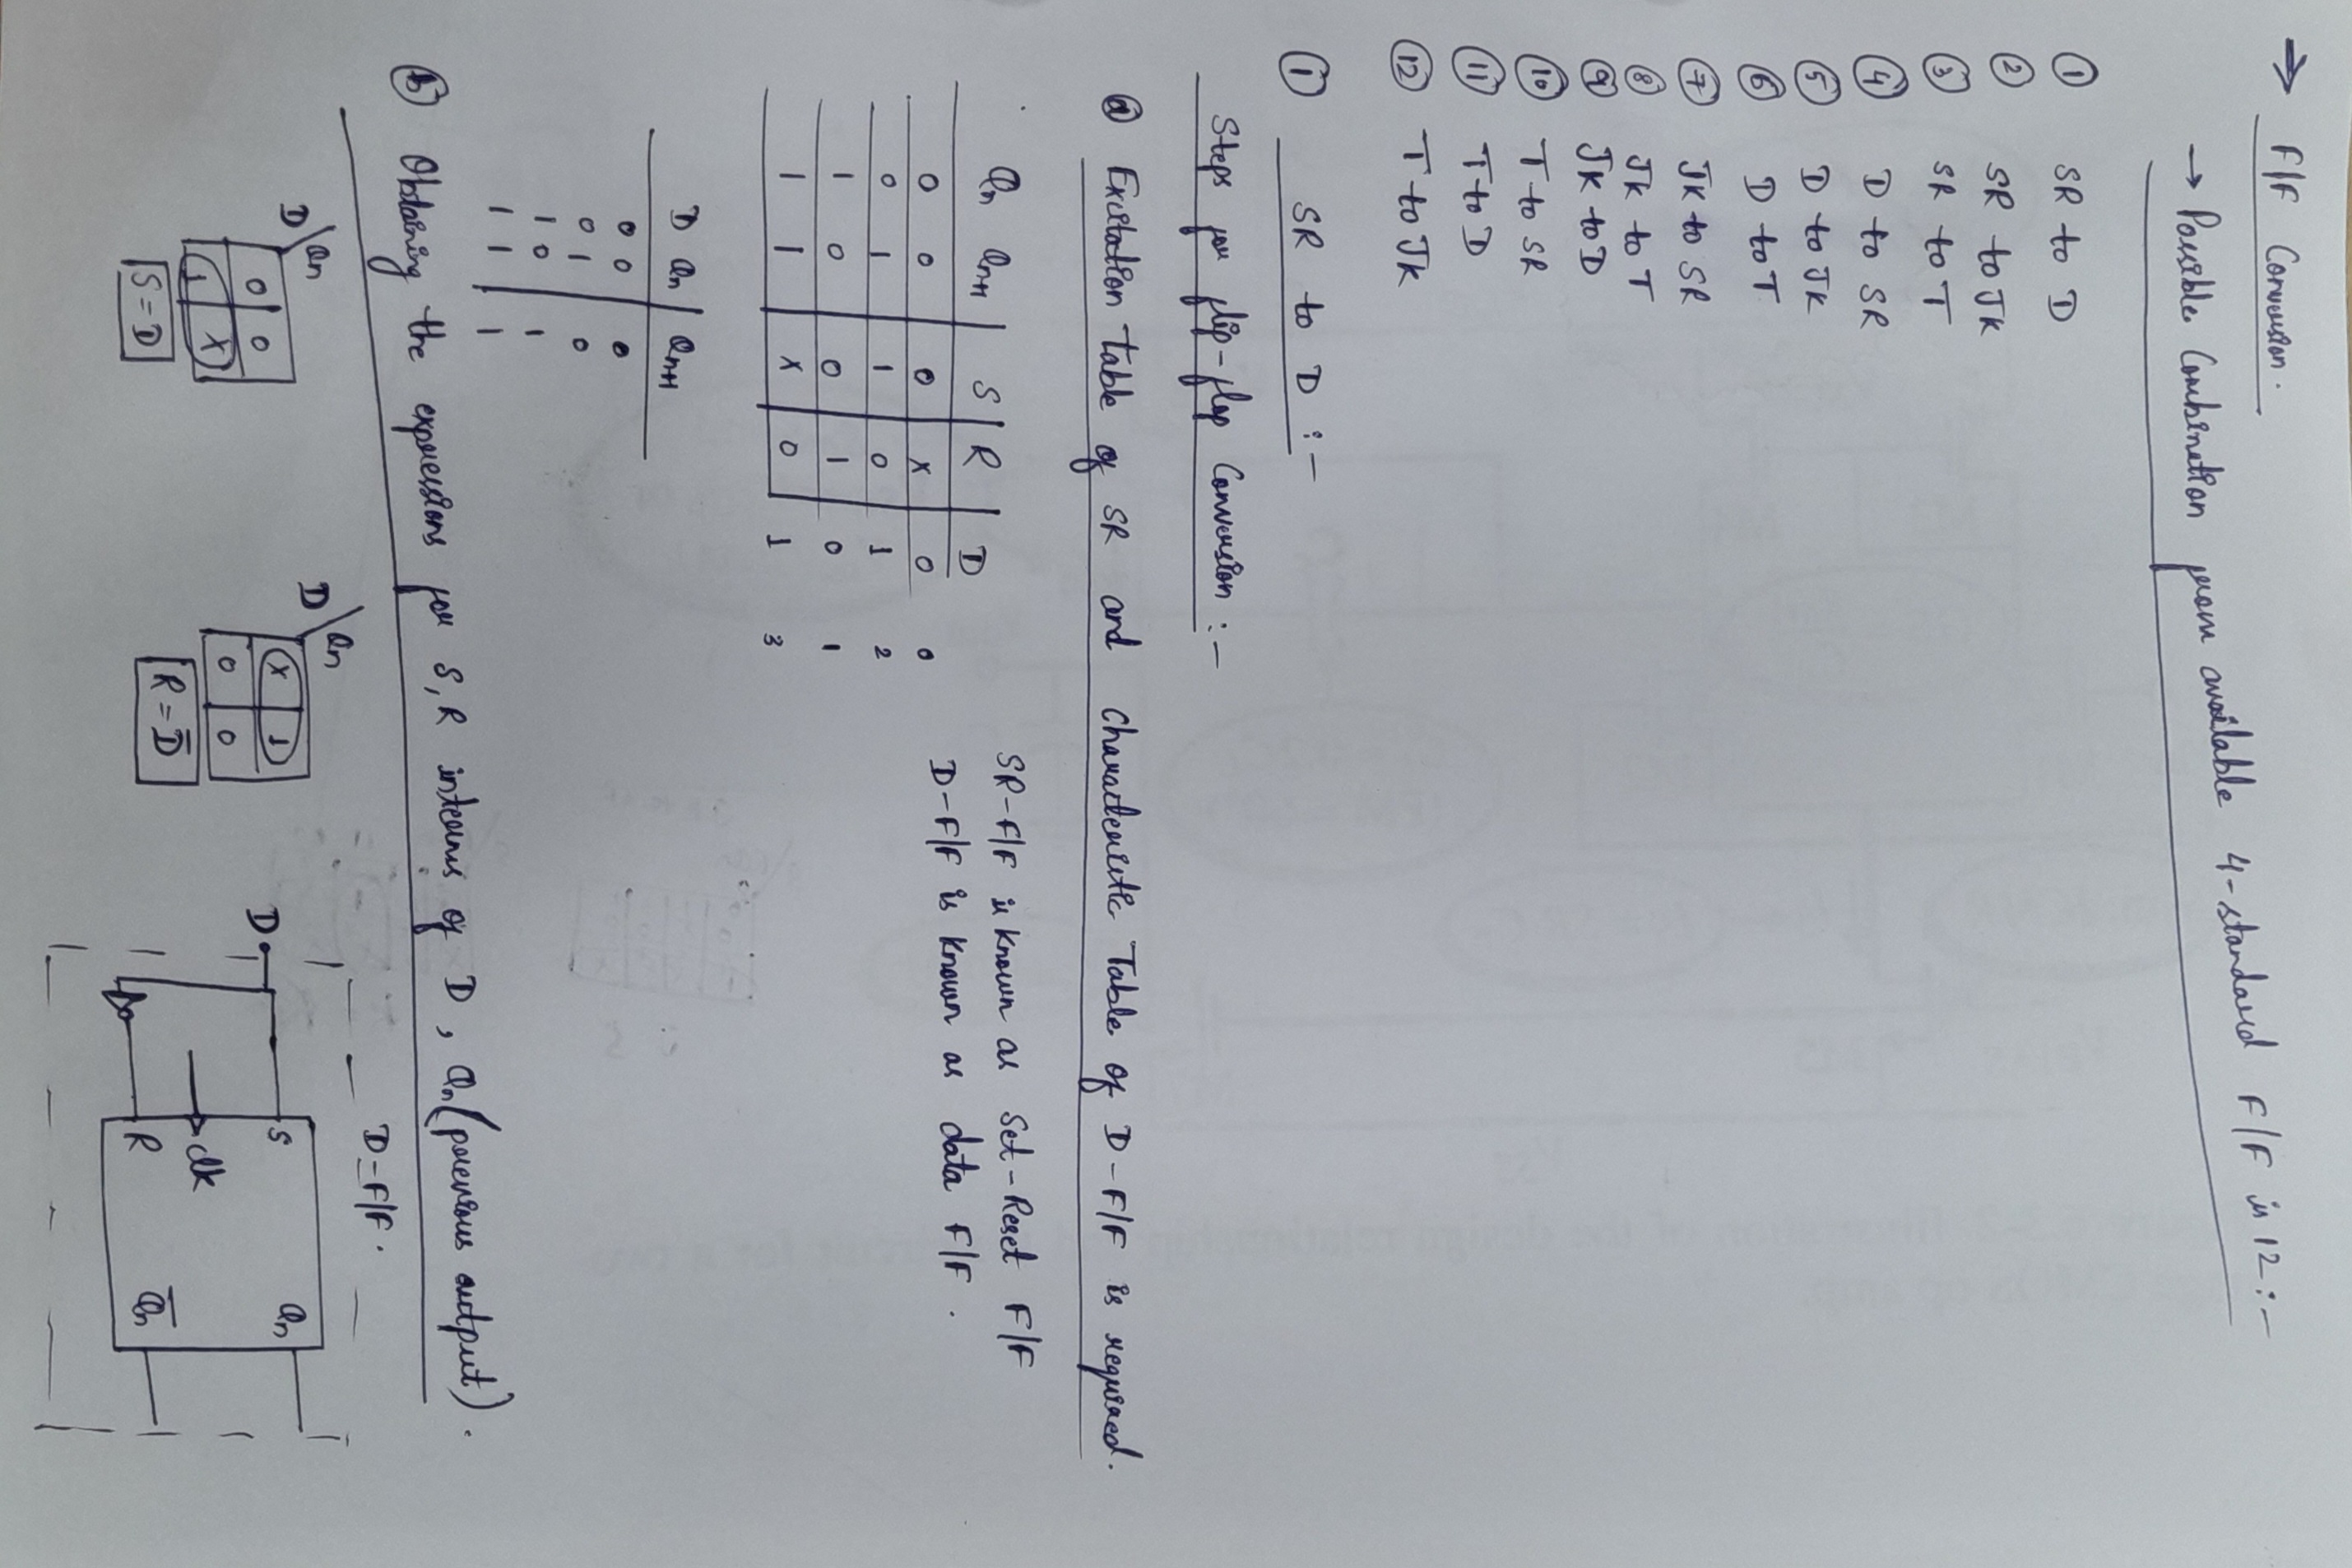 → F/F Conversion.
→ Possible Combination from available 4-standard F/F is 12:-
① SR to D
② SR to JK
③ SR to T
④ D to SR
⑤ D to JK
⑥ D to T
⑦ JK to SR
⑧ JK to T
⑨ JK to D
⑩ T to SR
⑪ T to D
⑫ T to JK
① SR to D :-
Steps for flip-flop Conversion :-
ⓐ Excitation table of SR and characteristic Table of D-F/F is required.
Qn Qn+1 S R D
0 0 0 X 0 0
0 1 1 0 1 2
1 0 0 1 0 1
1 1 X 0 1 3
SR-F/F is known as Set-Reset F/F
D-F/F is known as data F/F.
D Qn Qn+1
0 0 0
0 1 0
1 0 1
1 1 1
ⓑ Obtaining the expressions for S, R interms of D, Qn (previous output).
D Qn
0 0
1 X
S = D
D Qn
X 1
0 0
R = D̅
D-F/F.
D
S Qn
clk
R Q̅n